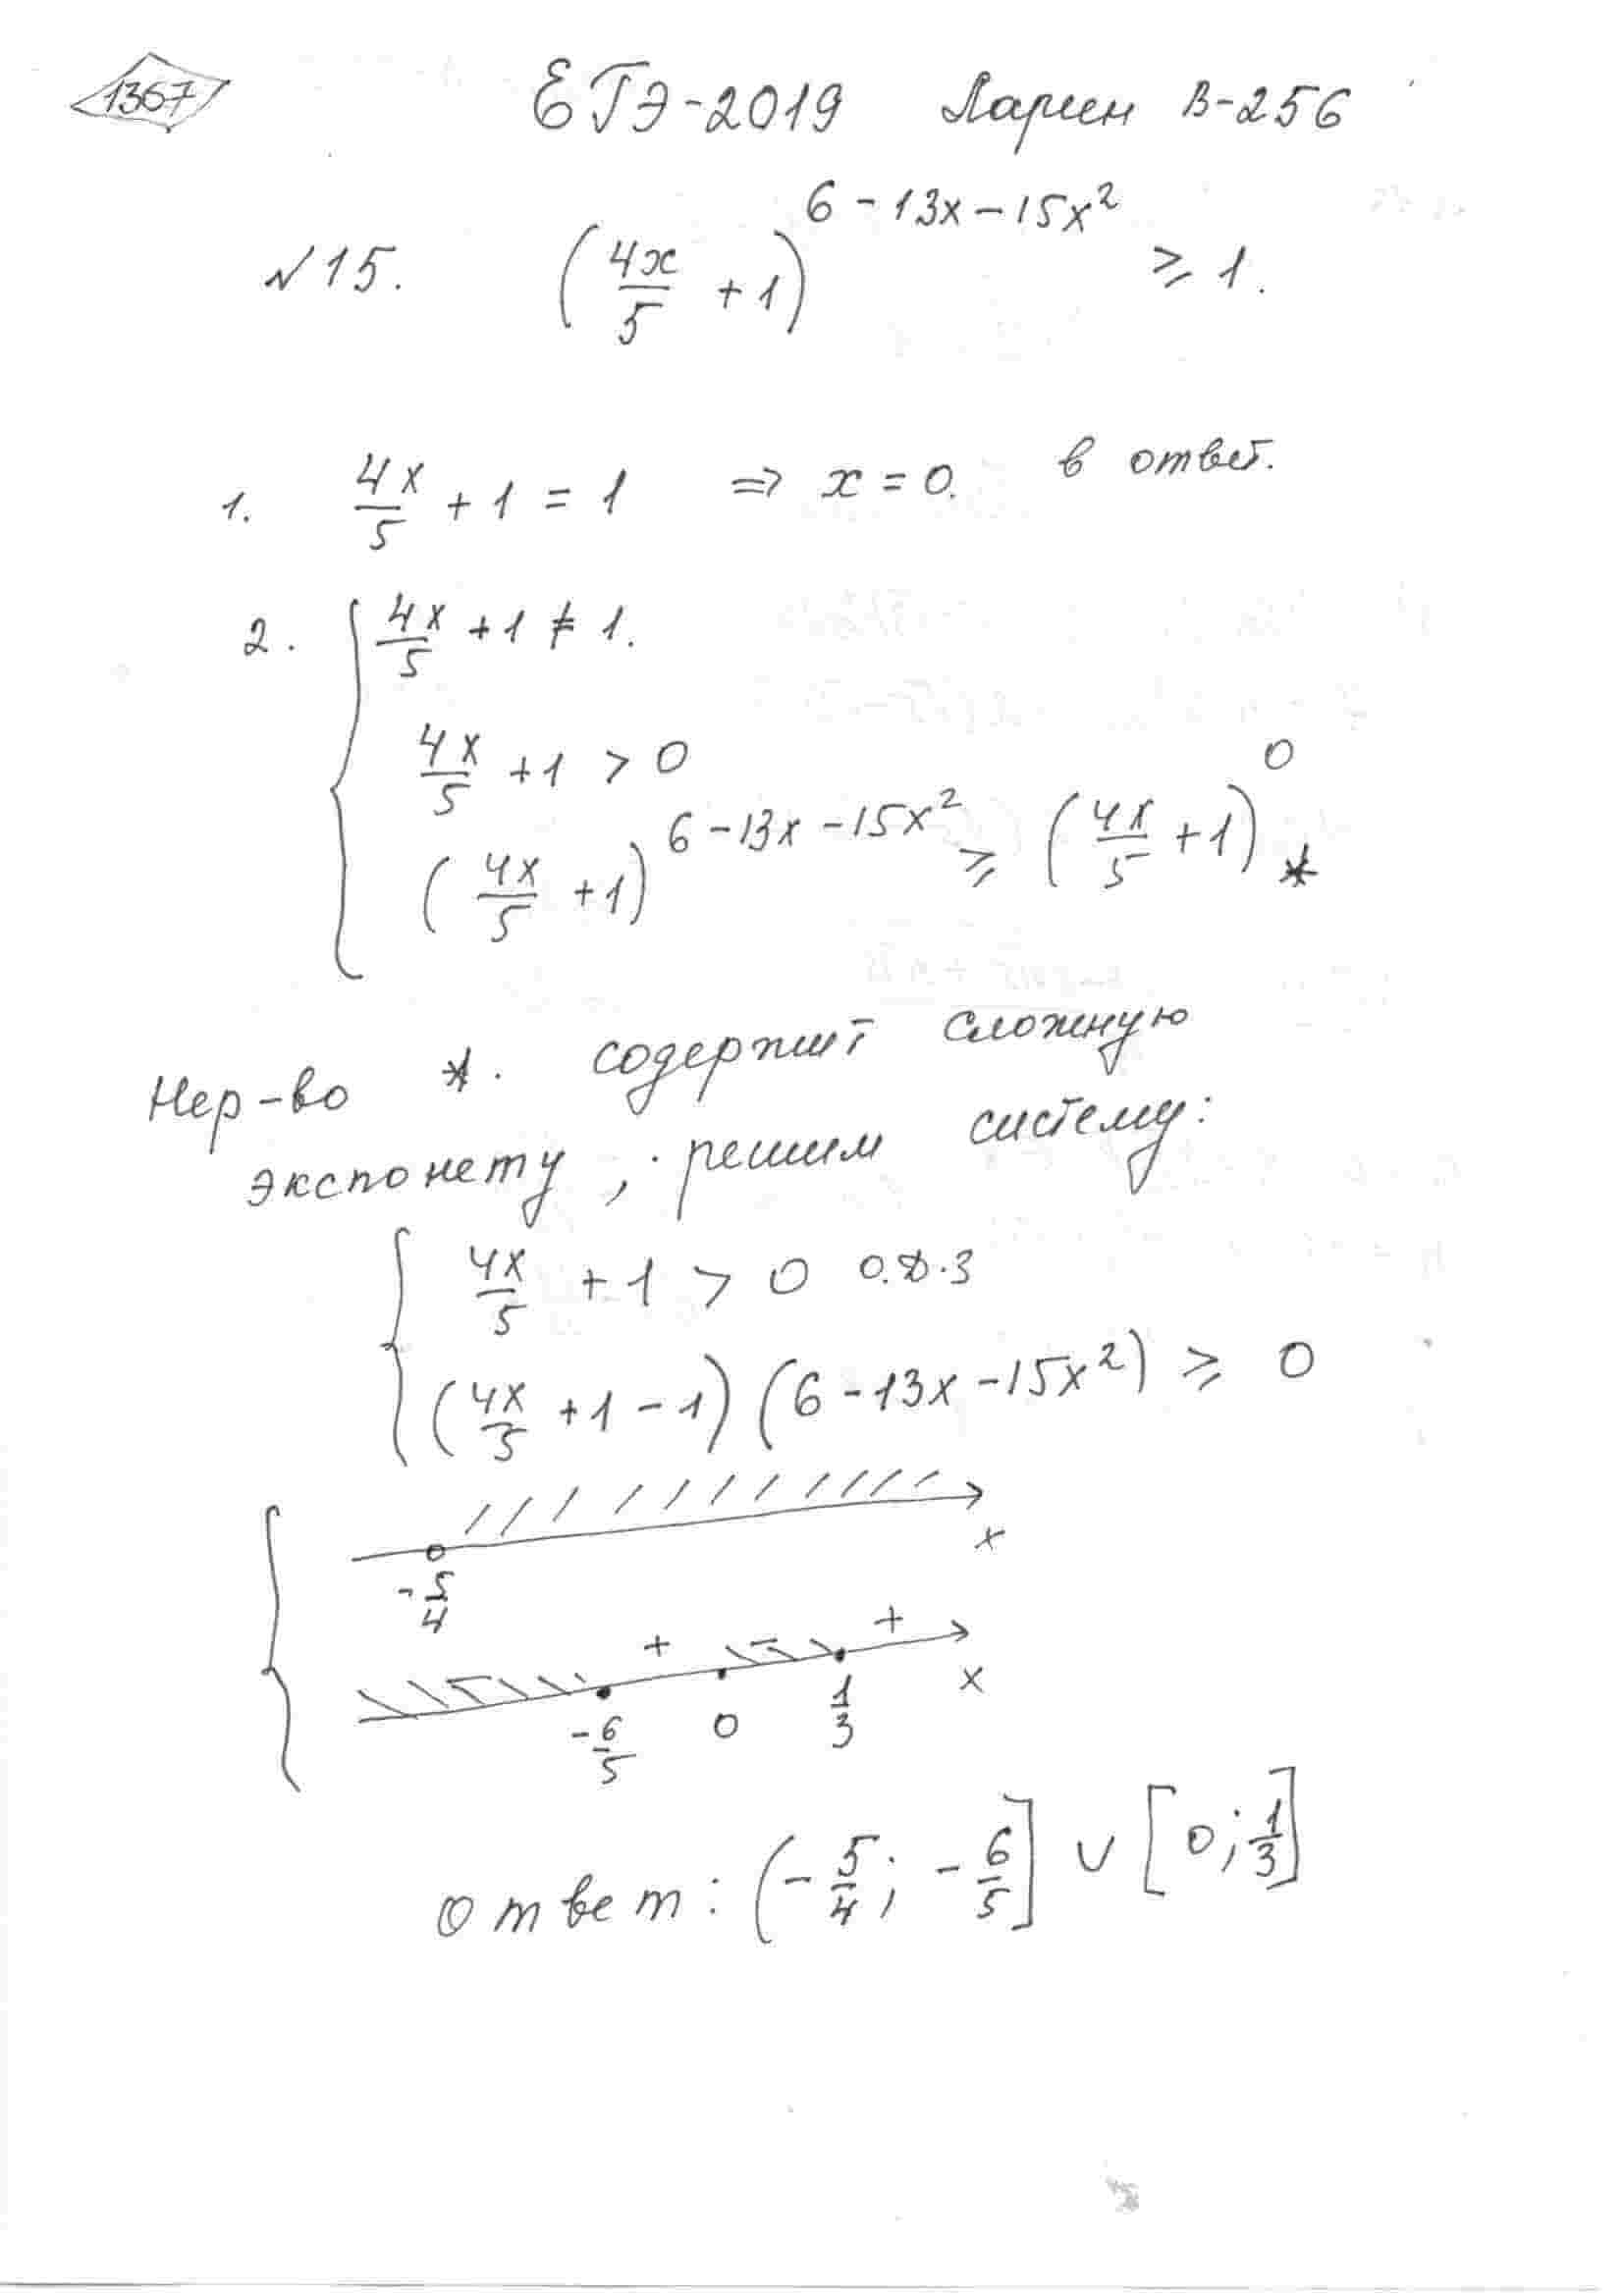 1367
ЕГЭ-2019 Ларин В-256
№15. (4x/5 + 1)^(6 - 13x - 15x²) ≥ 1.
1. 4x/5 + 1 = 1 ⇒ x = 0. в ответ.
2. { 4x/5 + 1 ≠ 1.
4x/5 + 1 > 0
(4x/5 + 1)^(6 - 13x - 15x²) ≥ (4x/5 + 1)^0 *
Нер-во *. содержит сложную
экспонету, решим систему:
{ 4x/5 + 1 > 0 О.Д.З
(4x/5 + 1 - 1)(6 - 13x - 15x²) ≥ 0
x
-5/4
- + - +
-6/5 0 1/3 x
Ответ: (-5/4; -6/5] ∪ [0; 1/3]